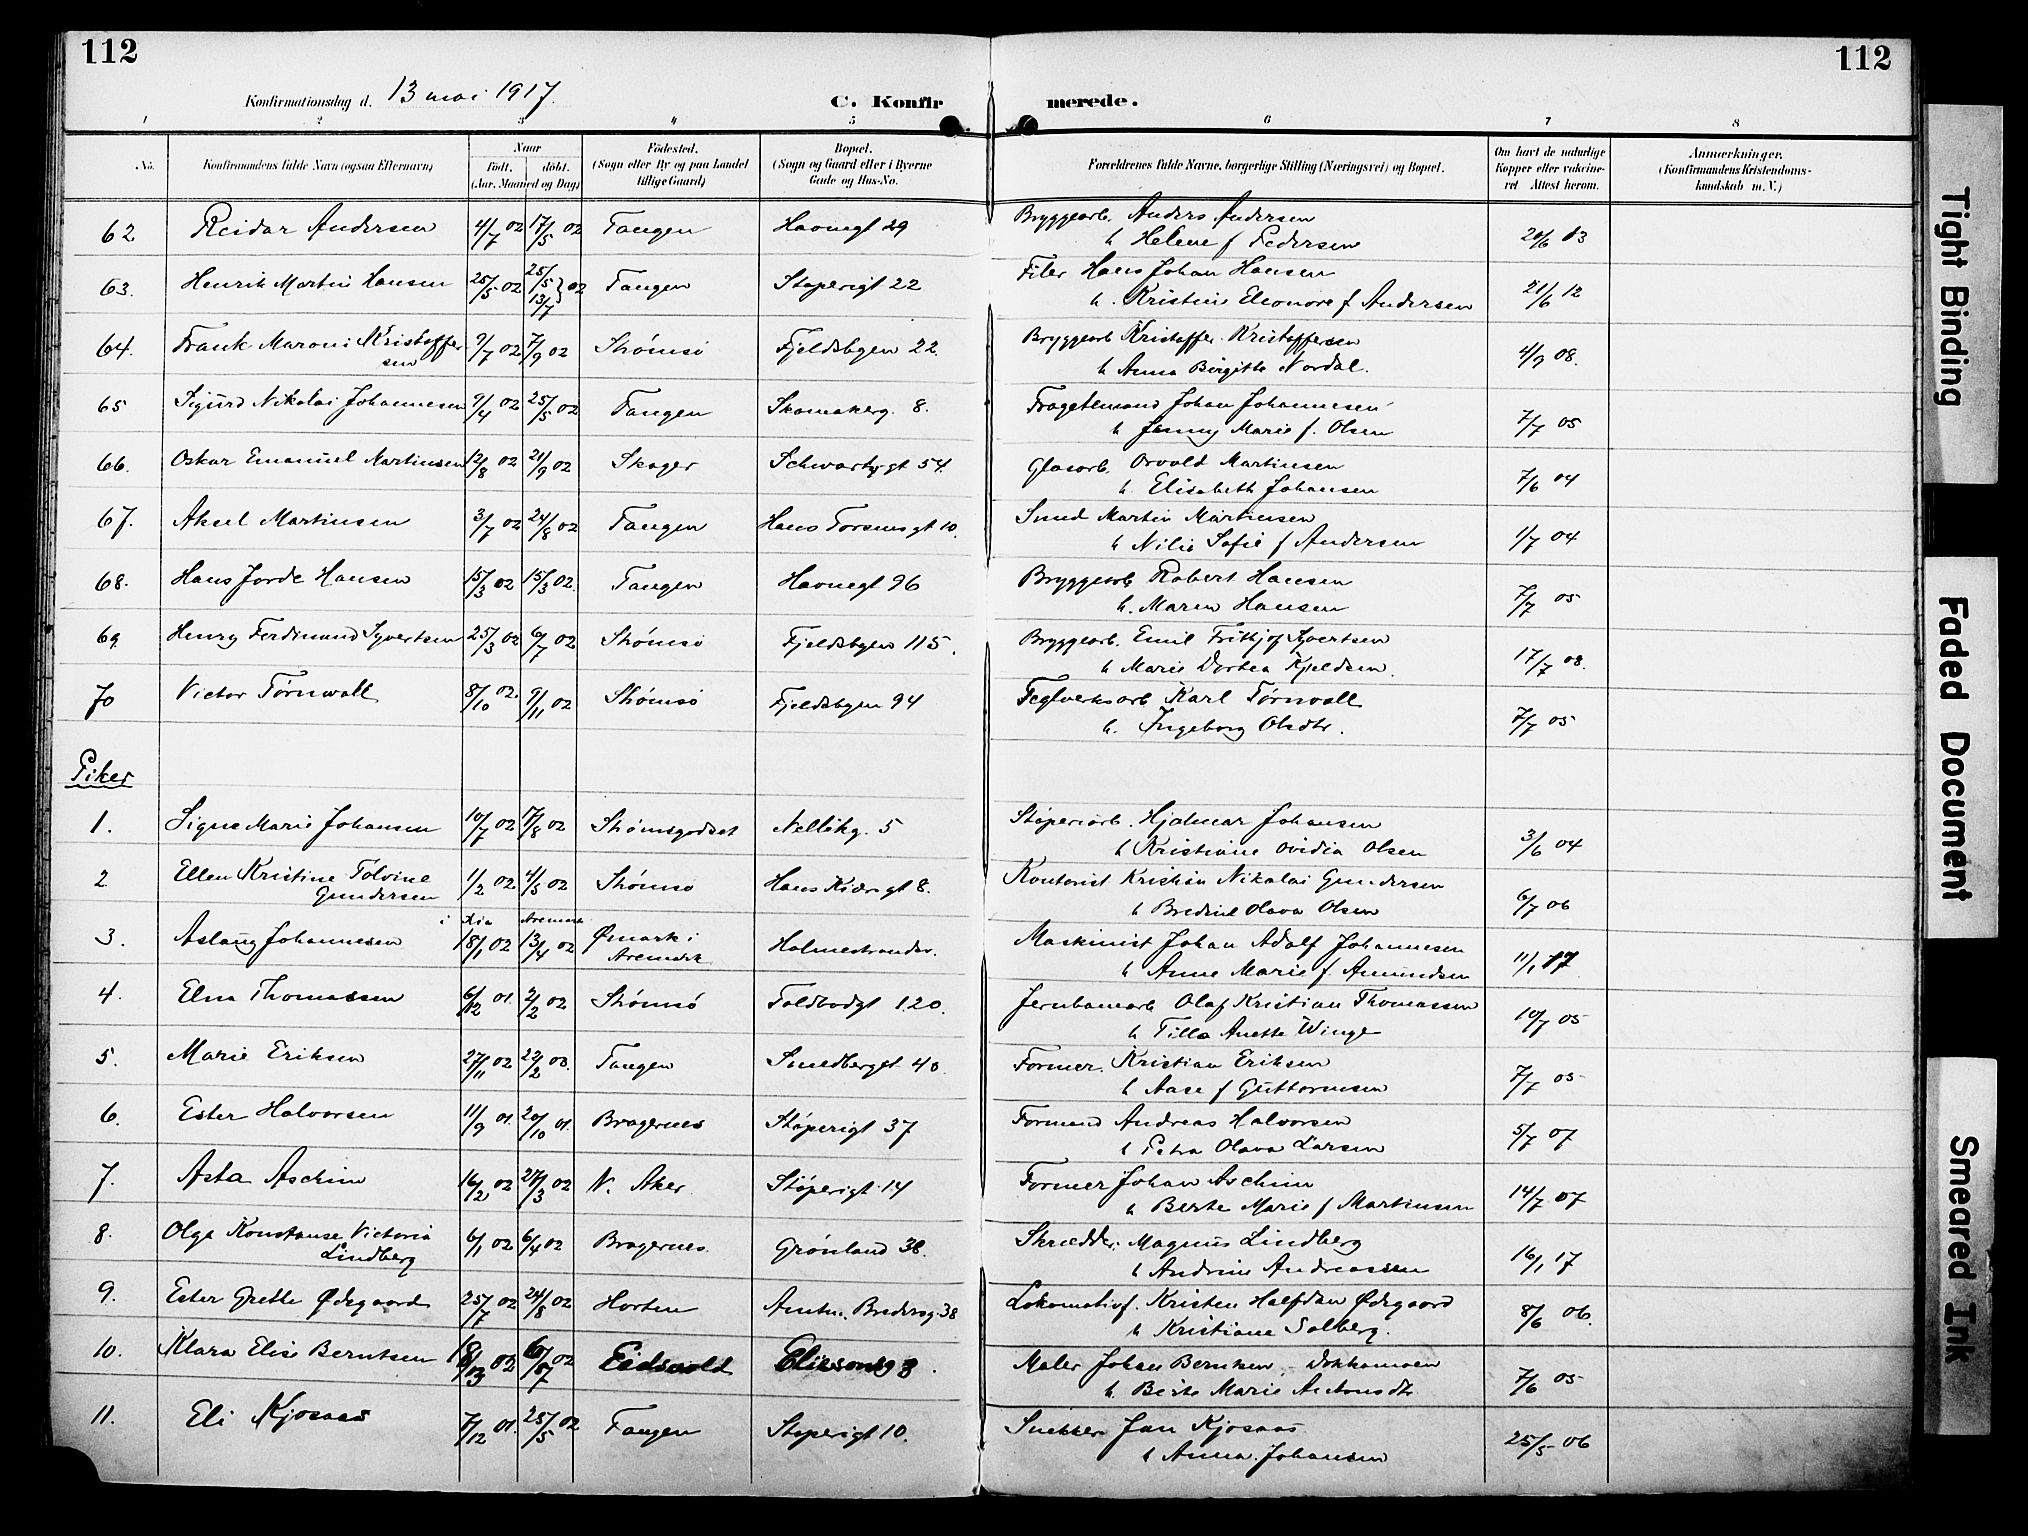 112
112
Konfirmationsdag d. 13 mai 1917.
C. Konfirmerede.
1 2 3 4 5 6 7 8
No.
Konfirmandens fulde Navn (ogsaa Efternavn)
Naar
født. døbt.
(Aar, Maaned og Dag)
Fødested.
(Sogn eller By og paa Landet
tillige Gaard)
Bopæl.
(Sogn og Gaard eller i Byerne
Gade og Hus-No.
Forældrenes fulde Navne, borgerlige Stilling (Næringsvei) og Bopæl.
Om havt de naturlige
Kopper eller vakcine-
ret Attest herom.
Anmærkninger.
(Konfirmandens Kristendoms-
kundskab m. V.)
62 Reidar Andersen 4/7 02 17/5 02 Tangen Havnegt 29 Bryggearb. Anders Andersen 20/6 03
h Helene f Pedersen
63. Henrik Martin Hansen 25/5 02 25/5 13/7 } 02 Tangen Støperigt 22 Filer Hans Johan Hansen 21/6 12
h. Kristine Eleonore f Andersen
64. Frank Maroni Kristoffer 9/7 02 7/9 02 Strømsø Fjeldsbygen 22. Bryggearb Kristoffer Kristoffersen 4/9 08.
sen h Anna Birgitte Nordal.
65 Sigurd Nikolai Johannesen 9/4 02 25/5 02 Tangen Skomakerg. 8. Fragtemand Johan Johannesen 7/7 05
h Jenny Marie f. Olsen
66. Oskar Emanuel Martinsen 12/8 02 21/9 02 Skoger Schwartzgt 54. Glasarb. Osvald Martinsen 7/6 04
h. Elisabeth Johansen
67. Aksel Martinsen 3/7 02 24/8 02 Tangen Hans Torsensgt 10. Smed Martin Martinsen 1/7 04
h Nilie Sofie f Andersen
68. Hans Jorde Hansen 15/3 02 15/3 02. Tangen Havnegt 96 Bryggearb Robert Hansen 7/7 05
h. Maren Hansen
69. Henry Ferdinand Syvertsen 25/3 02 6/7 02 Strømsø Fjeldsbygen 115. Bryggearb. Emil Fritjof Syvertsen 17/7 08.
h Marie Dortea Kjeldsen.
70 Victor Törnwall 8/10 02. 9/11 02 Strømsø Fjeldsbygen 94 Teglverksarb Karl Törnwall 7/7 05
h. Ingeborg Olsdtr.
Piker
1. Signe Marie Johansen 10/7 02 17/8 02 Strømsgodset Nellikg. 5 Støperiarb. Hjalmar Johansen 3/6 04
h Kristiane Ovidia Olsen
2 Ellen Kristine Tolvine 1/2 02 4/5 02 Strømsø Hans Kiærsgt 8. Kontorist Kristian Nikolai Gundersen 6/7 06
Gundersen h Bredine Olava Olsen
i Kra Aremark
3. Aslaug Johannesen 18/1 02 13/4 02 Ømark i Holmestrandsv. Maskinist Johan Adolf Johannesen 11/1 17
Aremark h Anne Marie f Amundsen
4. Elna Thomassen 6/12 01. 2/2 02 Strømsø Toldbodgt 120. Jernbanearb Olaf Kristian Thomassen 10/7 05
h Tilla Anette Winge
5. Marie Eriksen 27/11 02 22/2 03. Tangen Smedberggt 40 Former. Kristian Eriksen 7/7 05
h Aase f Guttormsen
6. Ester Halvorsen 11/9 01. 20/10 01. Bragernes Støperigt 37 Formand Andreas Halvorsen 5/7 07
h Petra Olava Larsen
7. Asta Aschim 16/2 02 27/3 02 N. Aker Støperigt 14 Former Johan Aschim 14/7 07
h Berte Marie f Martinsen
8. Olga Konstanse Victoria 6/1 02 6/4 02 Bragernes. Grønland 38. Skrædder. Magnus Lindberg 16/1 17
Lindberg h Andrine Andreassen
9. Ester Grethe Ødegaard 25/7 02 24/8 02 Horten Amtm. Bredersg. 38 Lokomotivf. Kristen Halfdan Ødegaard 8/6 06.
h Kristiane Solberg.
10. Klara Elise Berntsen 02 02 Eidsvold Eliksensg 3. Maler Johan Berntsen 7/6 05
h. Berte Marie Antonsdtr
11. Eli Kjosaas 7/12 01. 25/5 02 Tangen Støperigt 10. Snekker Jan Kjosaas 25/5 06
h Anna Johansen
Tight Binding
Faded Document
Smeared Ink